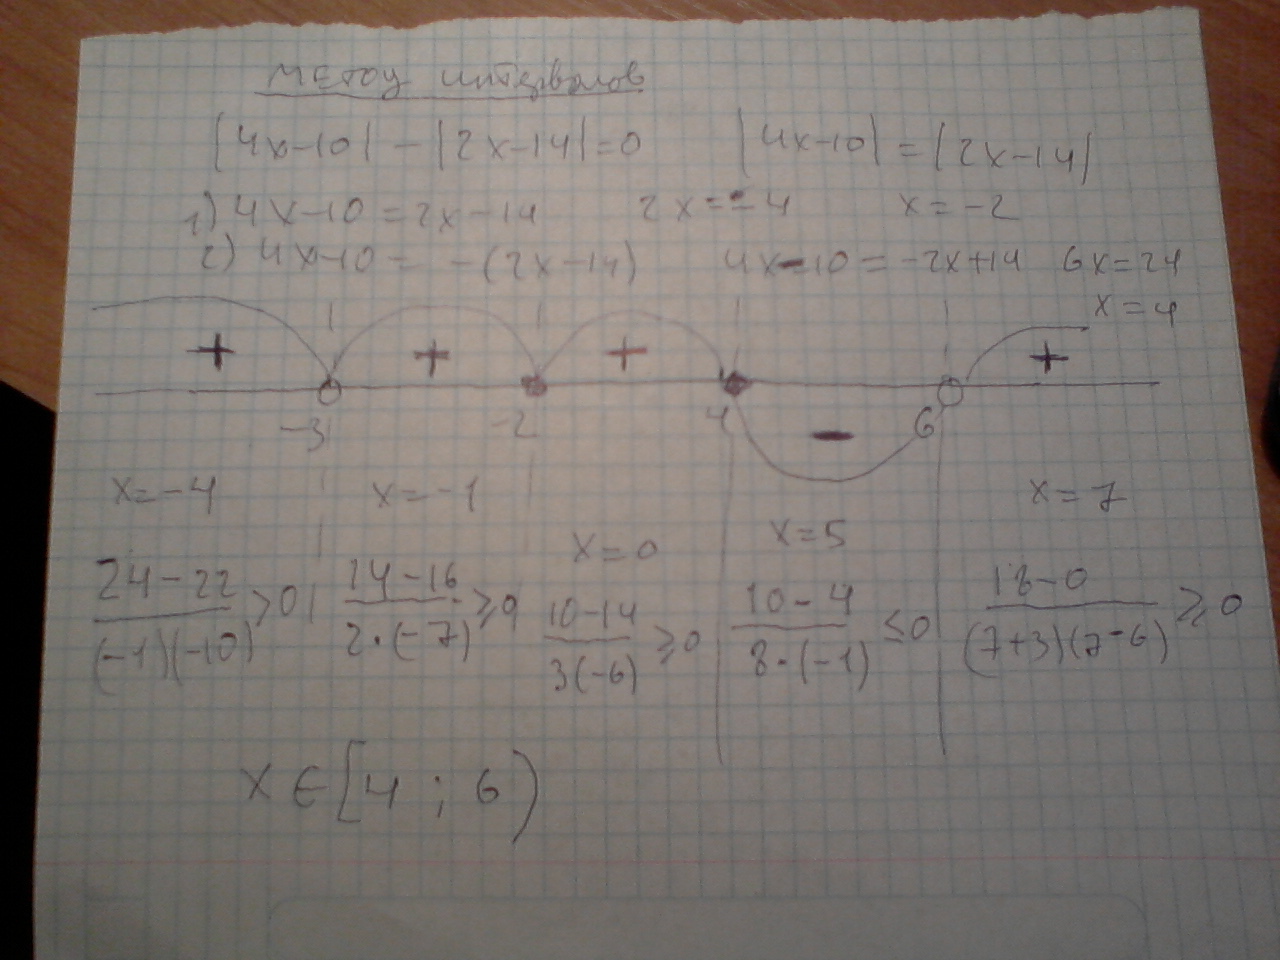 Метод интервалов
|4x-10| - |2x-14|=0 |4x-10| = |2x-14|
1) 4x-10 = 2x-14 2x=-4 x=-2
2) 4x-10 = -(2x-14) 4x-10=-2x+14 6x=24
x=4
+ + + - +
-3 -2 4 6
x=-4 x=-1 x=0 x=5 x=7
(24-22)/((-1)(-10))>0 (14-16)/(2·(-7))≥0 (10-14)/(3(-6))≥0 (10-4)/(8·(-1))≤0 (18-0)/((7+3)(7-6))≥0
x∈[4;6)